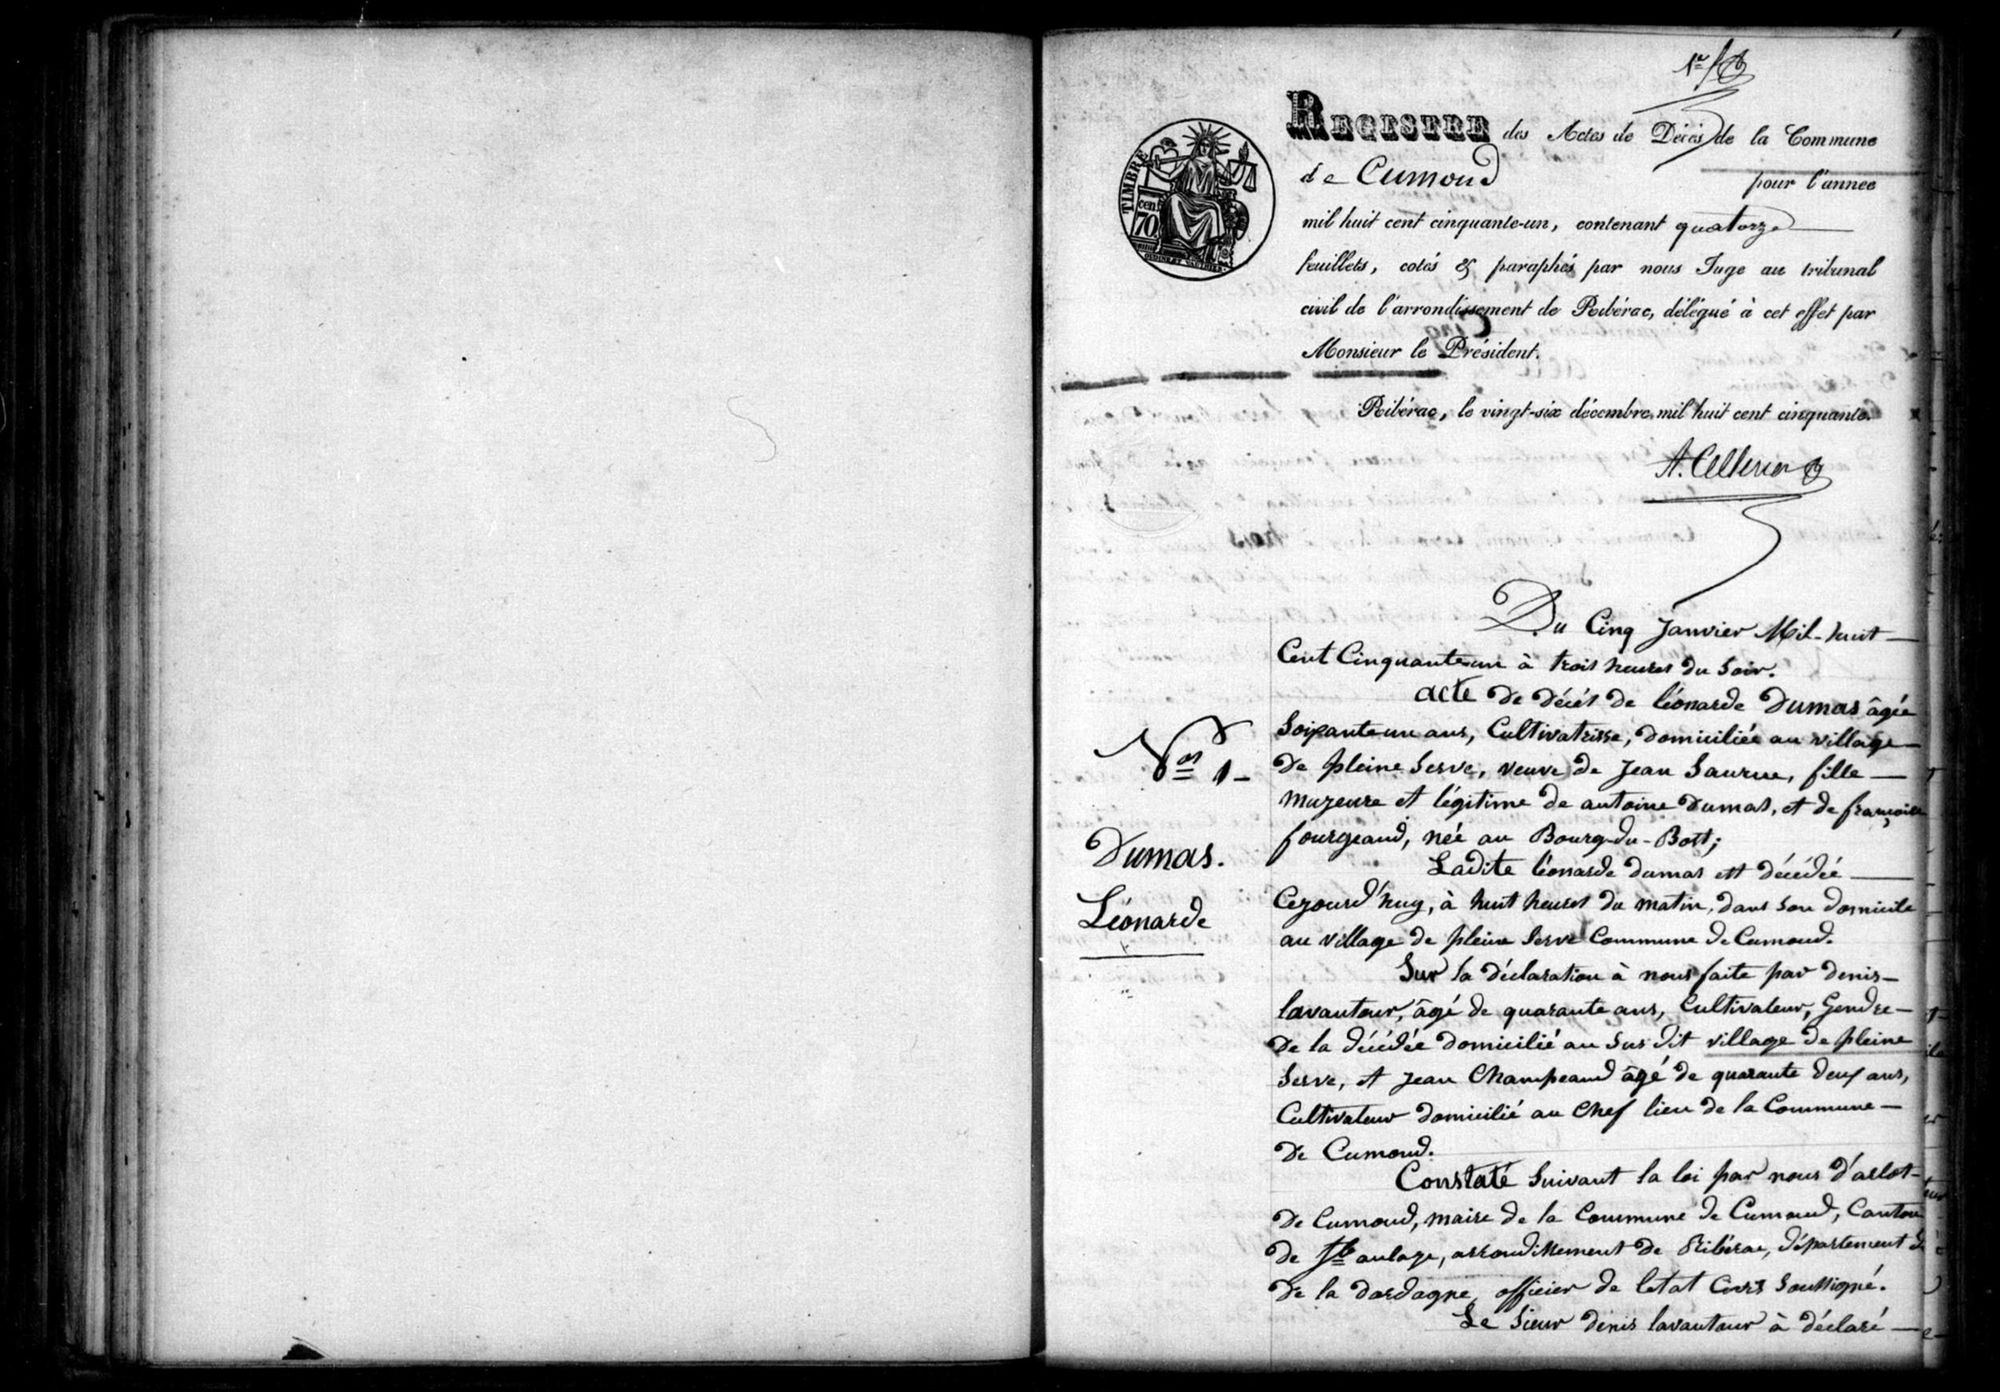 1er
TIMBRE
70 cent
REGISTRE des Actes de Décès de la Commune
de Cumond pour l'annee
mil huit cent cinquante-un, contenant quatorze
feuillets, cotés & paraphés par nous Juge au tribunal
civil de l'arrondissement de Ribérac, délégué à cet effet par
Monsieur le Président.
Ribérac, le vingt-six décembre mil huit cent cinquante.
A. Cellerier
Du Cinq Janvier Mil-huit
Cent Cinquante un à trois heures du Soir.
acte de décès de léonarde Dumas âgée
Soixante un ans, Cultivatrisse, domiciliée au village
de pleine Serve, veuve de Jean Saurue, fille
mazeure et légitime de antoine Dumas, et de françoise
fourgeaud, née au Bourg-du-Bost;
Ladite léonarde dumas est décédée
Cezourd'huy, à huit heures du matin, dans Son domicile
au village de pleine Serve Commune de Cumond.
Sur la déclaration à nous faite par denis
lavautour, âgé de quarante ans, Cultivateur, Gendre
de la décédée domicilié au Sus dit village de pleine
Serve, et Jean Champeaud âgé de quarante deux ans,
Cultivateur domicilié au Chef lieu de la Commune
de Cumond.
Constaté Suivant la loi par nous d'arlot
de Cumond, maire de la Commune de Cumond, Canton
de Ste aulage, arrondissement de Ribérac, département
de la dordogne, officier de letat Civil Soussigné.
Le Sieur denis lavautour à déclaré
Nos 1
Dumas.
Léonarde